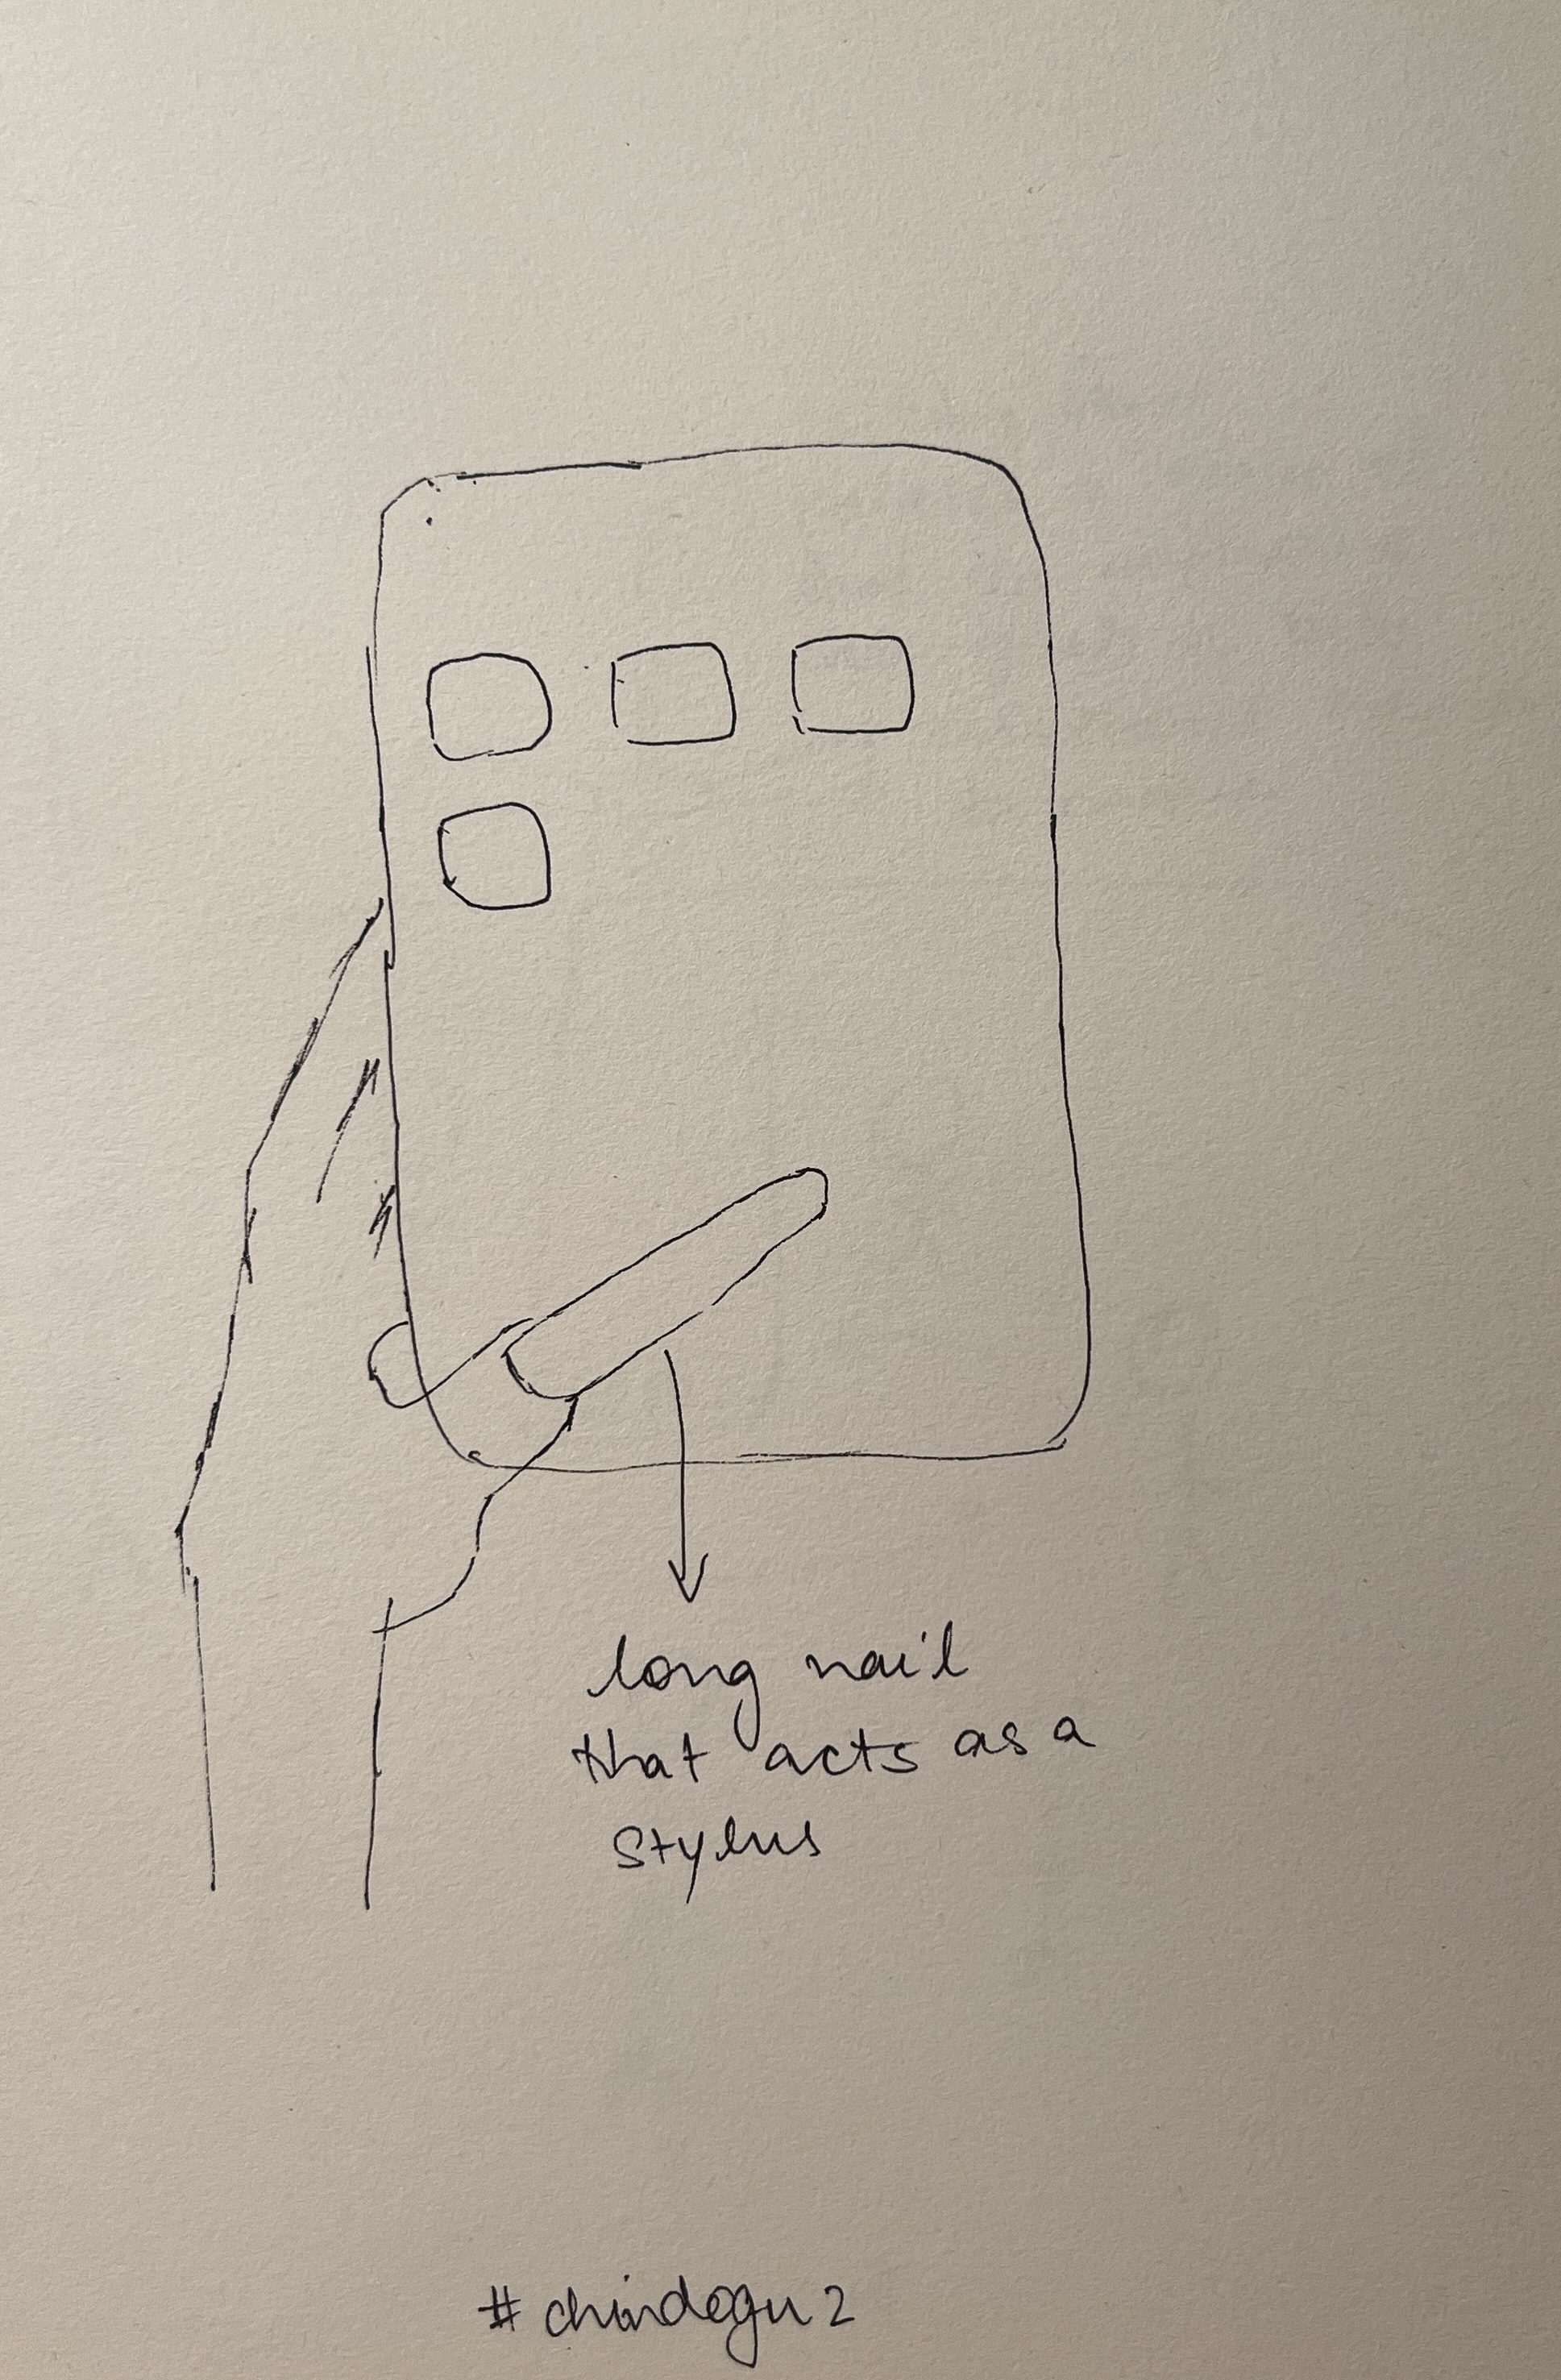 long nail
that acts as a
stylus
#chindogu 2